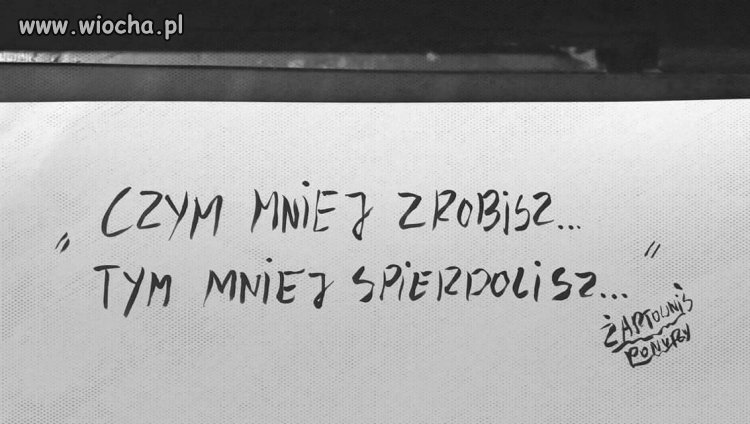 www.wiocha.pl
„ CZYM MNIEJ ZROBISZ...
TYM MNIEJ SPIERDOLISZ... "
ŻARTOWNIŚ
PONURY